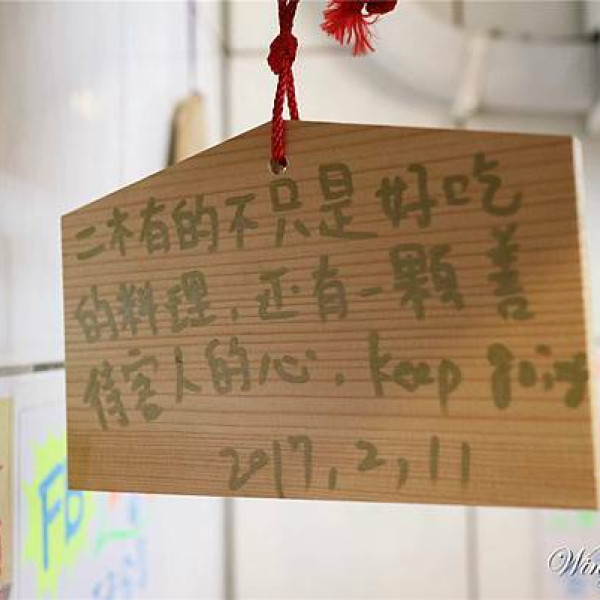 二木有的不只是好吃
的料理，还有一顆善
待客人的心，keep going
2017,2,11
FB
Win